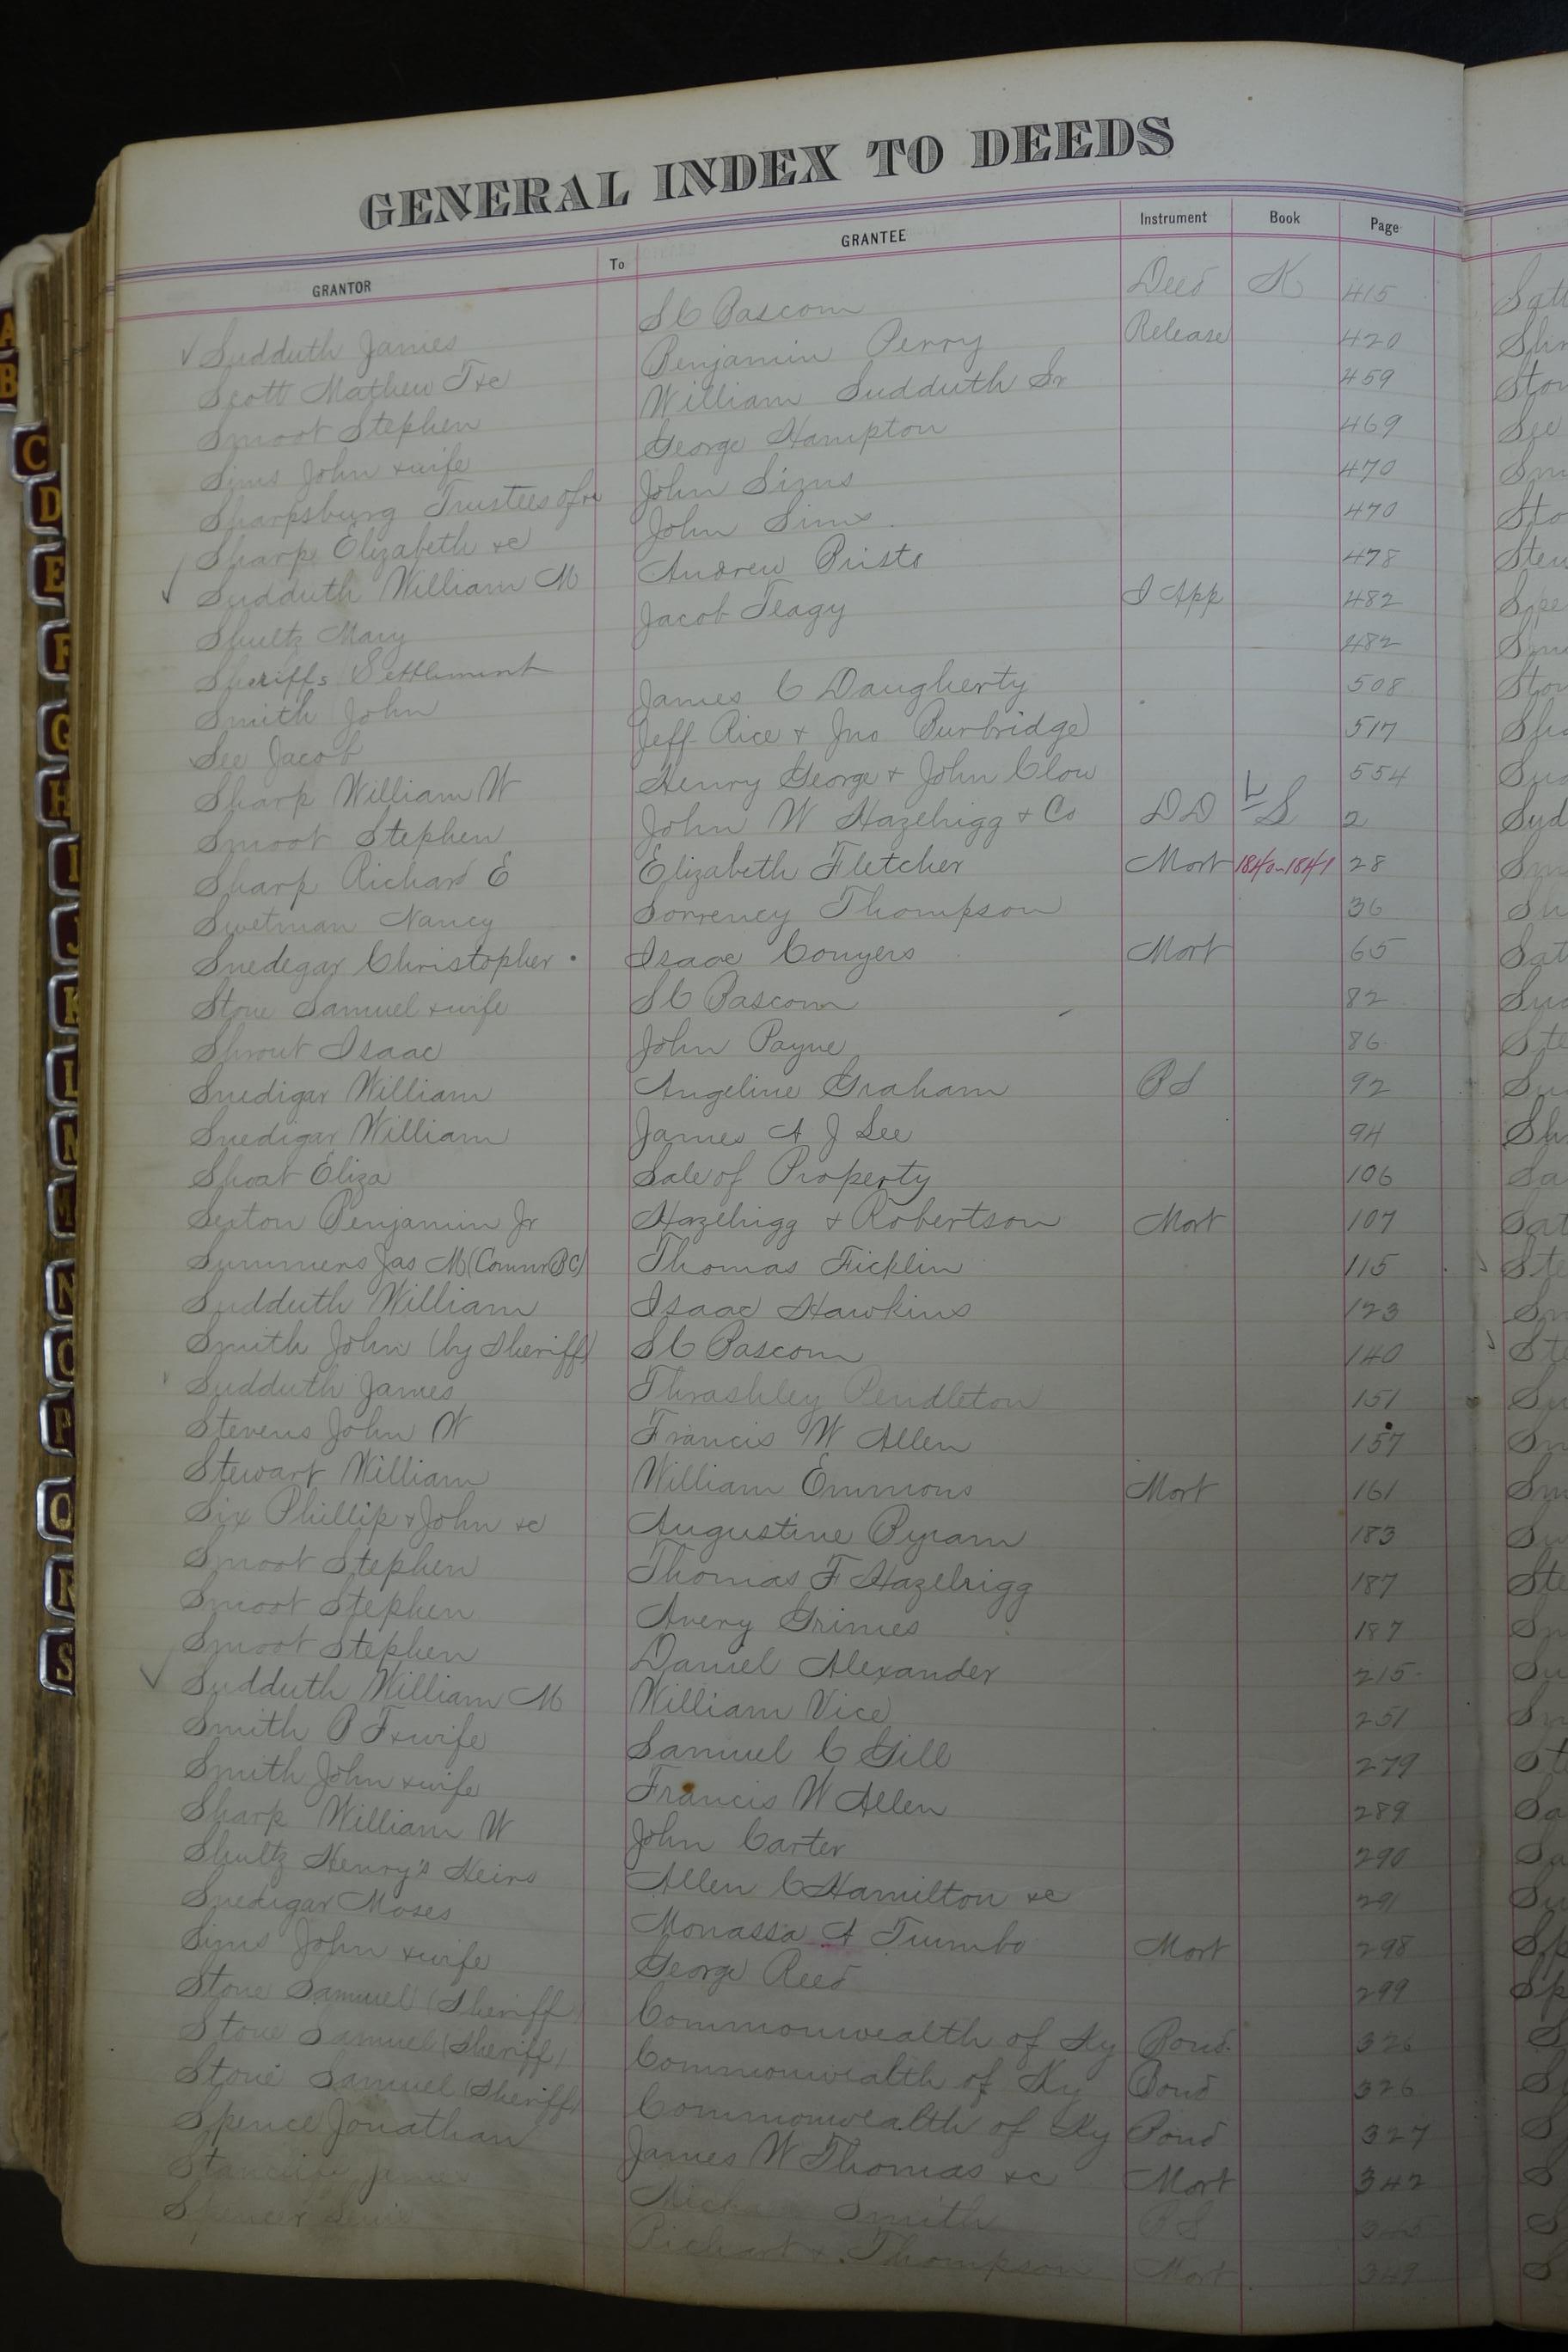 GENERAL INDEX TO DEEDS
GRANTOR To GRANTEE Instrument Book Page
Sudduth James S C Bascom Deed K 415
Scott Mathew T &c Benjamin Perry Release 420
Smoot Stephen William Sudduth Sr 459
Sims John & wife George Hampton 469
Sharpsburg Trustees of &c John Sims 470
Sharp Elizabeth &c John Sims 470
Sudduth William M Andrew 478
Shultz Mary Jacob Teagy I App 482
Sheriffs Settlement 482
Smith John James C Daugherty 508
See Jacob Jeff Rice & Jno Burbridge 517
Sharp William W Henry George & John Clow 554
Smoot Stephen John W Hazelrigg & Co DD L S 2
Sharp Richard E Elizabeth Fletcher Mort 1840-1841 28
Swetman Nancy Sorrency Thompson 36
Snedegar Christopher Isaac Conyers Mort 65
Stone Samuel & wife S C Bascom 82
Shrout Isaac John Payne 86
Snedigar William Angeline Graham BS 92
Snedigar William James A J See 94
Shoat Eliza Sale of Property 106
Sexton Benjamin Jr Hazelrigg & Robertson Mort 107
Summers Jas M (Commr BC) Thomas Ficklin 115
Sudduth William Isaac Hawkins 123
Smith John (by Sheriff) S C Bascom 140
Sudduth James Thrashley Pendleton 151
Stevens John W Francis W Allen 157
Stewart William William Emmons Mort 161
Six Phillip & John &c Augustine Byram 183
Smoot Stephen Thomas F Hazelrigg 187
Smoot Stephen Avery Grimes 187
Smoot Stephen Daniel Alexander 215
Sudduth William M William Vice 251
Smith B F & wife Samuel C Gill 279
Smith John & wife Francis W Allen 289
Sharp William W John Carter 290
Shultz Henry's Heirs Allen C Hamilton &c 291
Snedigar Moses Monassa A Trumbo Mort 298
Sims John & wife George Reed 299
Stone Samuel (Sheriff) Commonwealth of Ky Bond 326
Stone Samuel (Sheriff) Commonwealth of Ky Bond 326
Stone Samuel (Sheriff) Commonwealth of Ky Bond 327
Spence Jonathan James W Thomas &c Mort 342
Smith BS
Spencer Richart & Thompson Mort 349